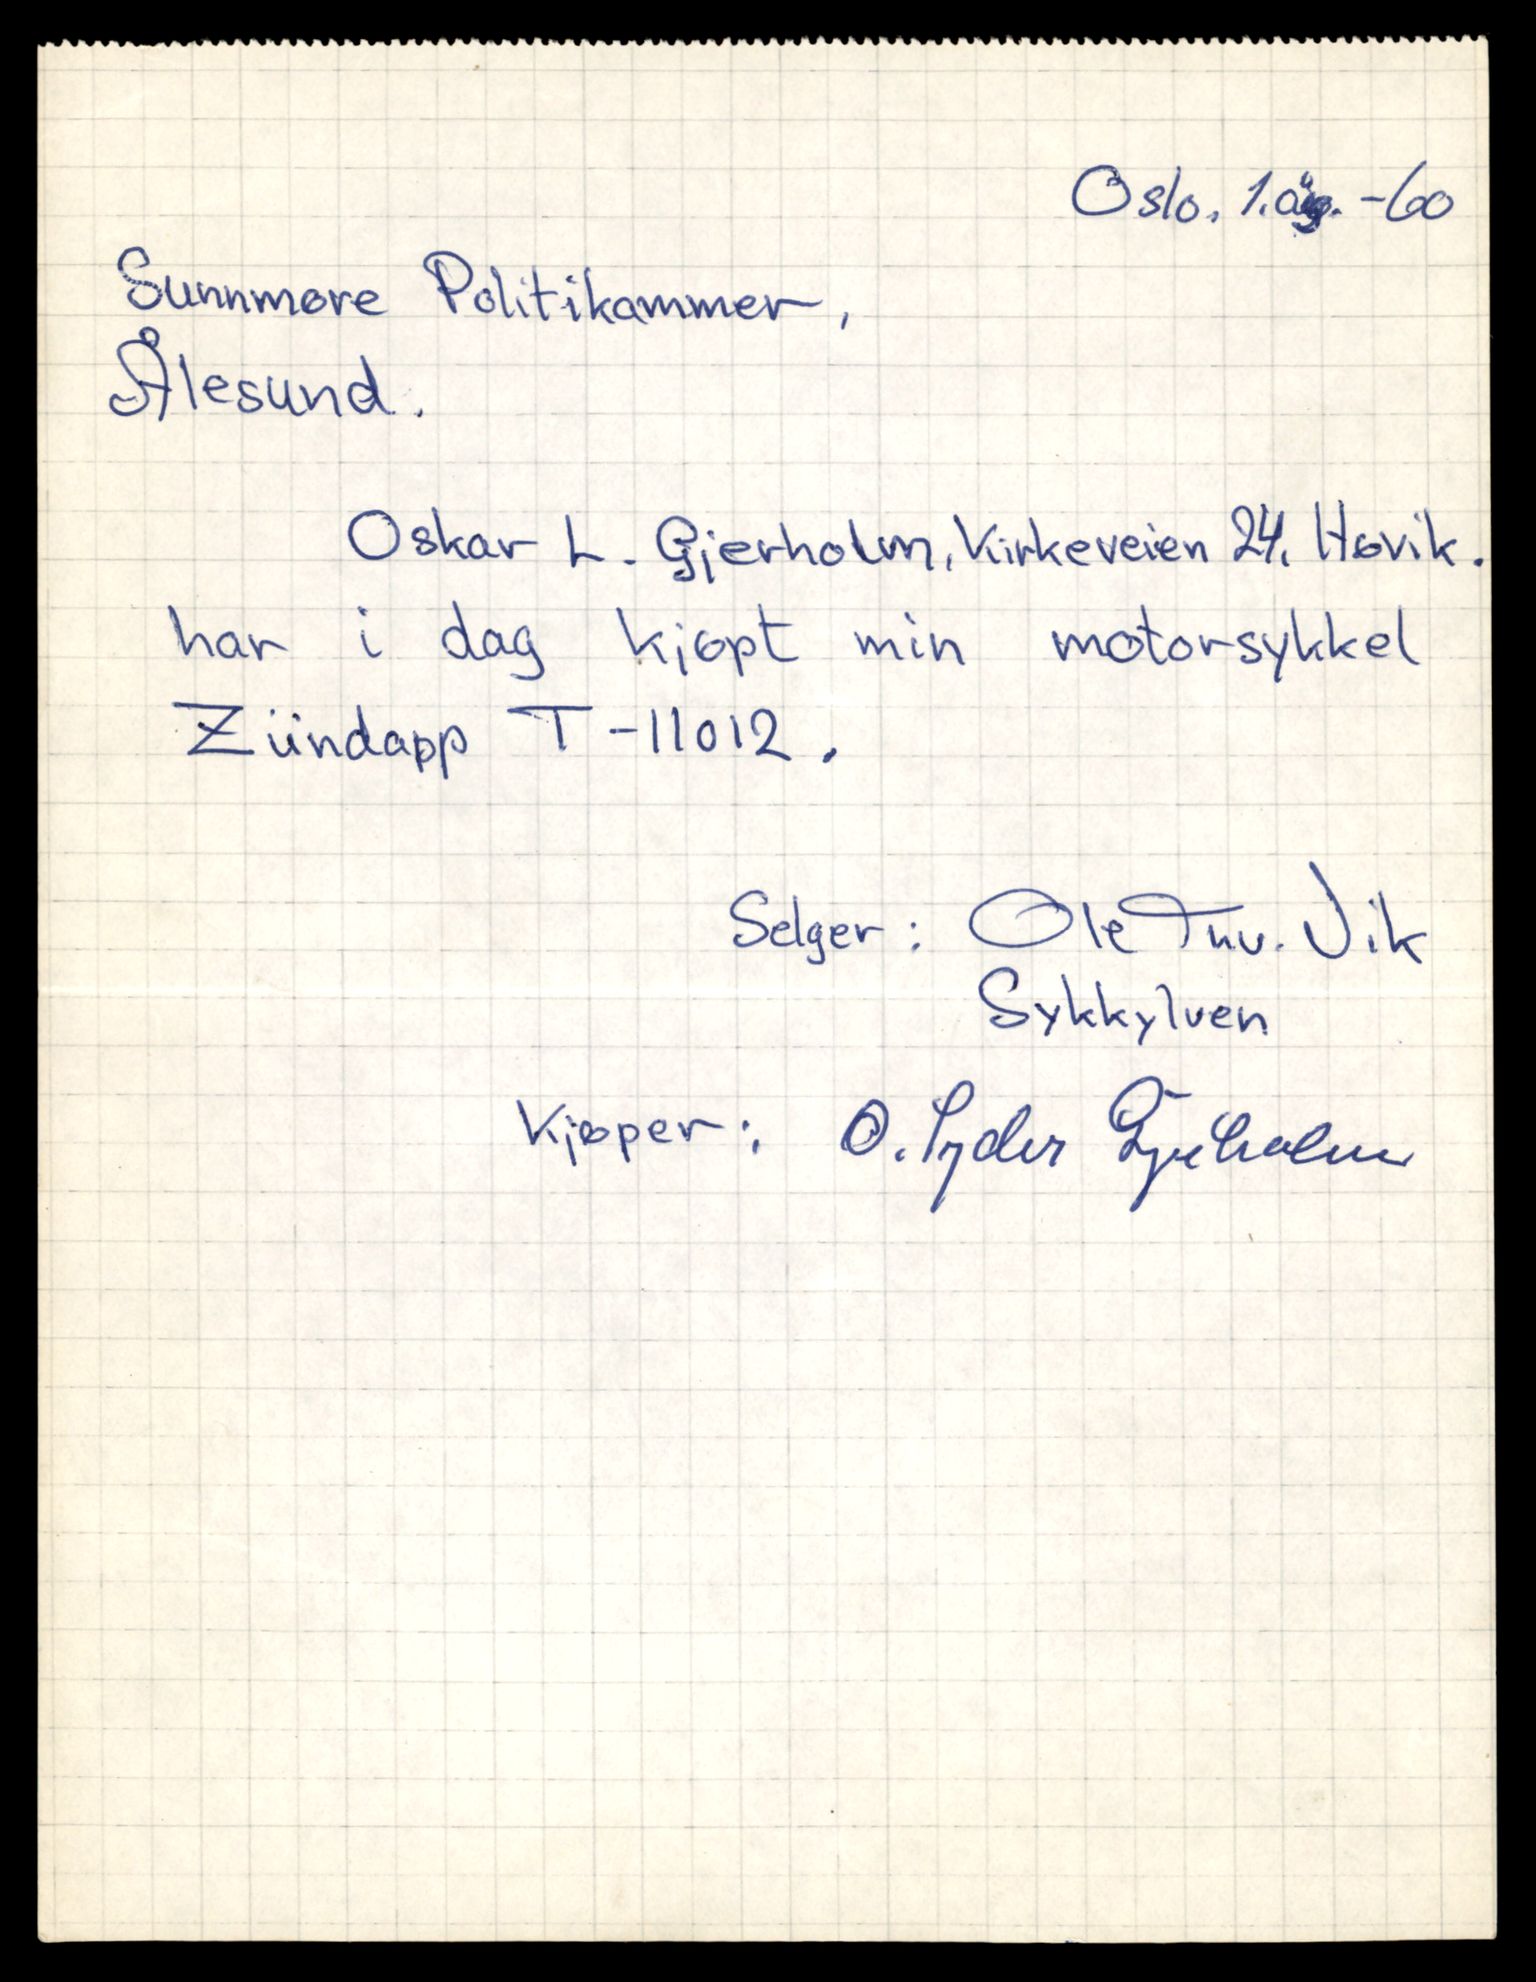 Oslo. 1. aug. -60
Sunnmøre Politikammer,
Ålesund.
Oskar L. Gjerholm, Kirkeveien 24, Høvik.
har i dag kjøpt min motorsykkel
Zündapp T-11012.
Selger: Ole Vik
Sykkylven
Kjøper: O. Lyder Gjerholm